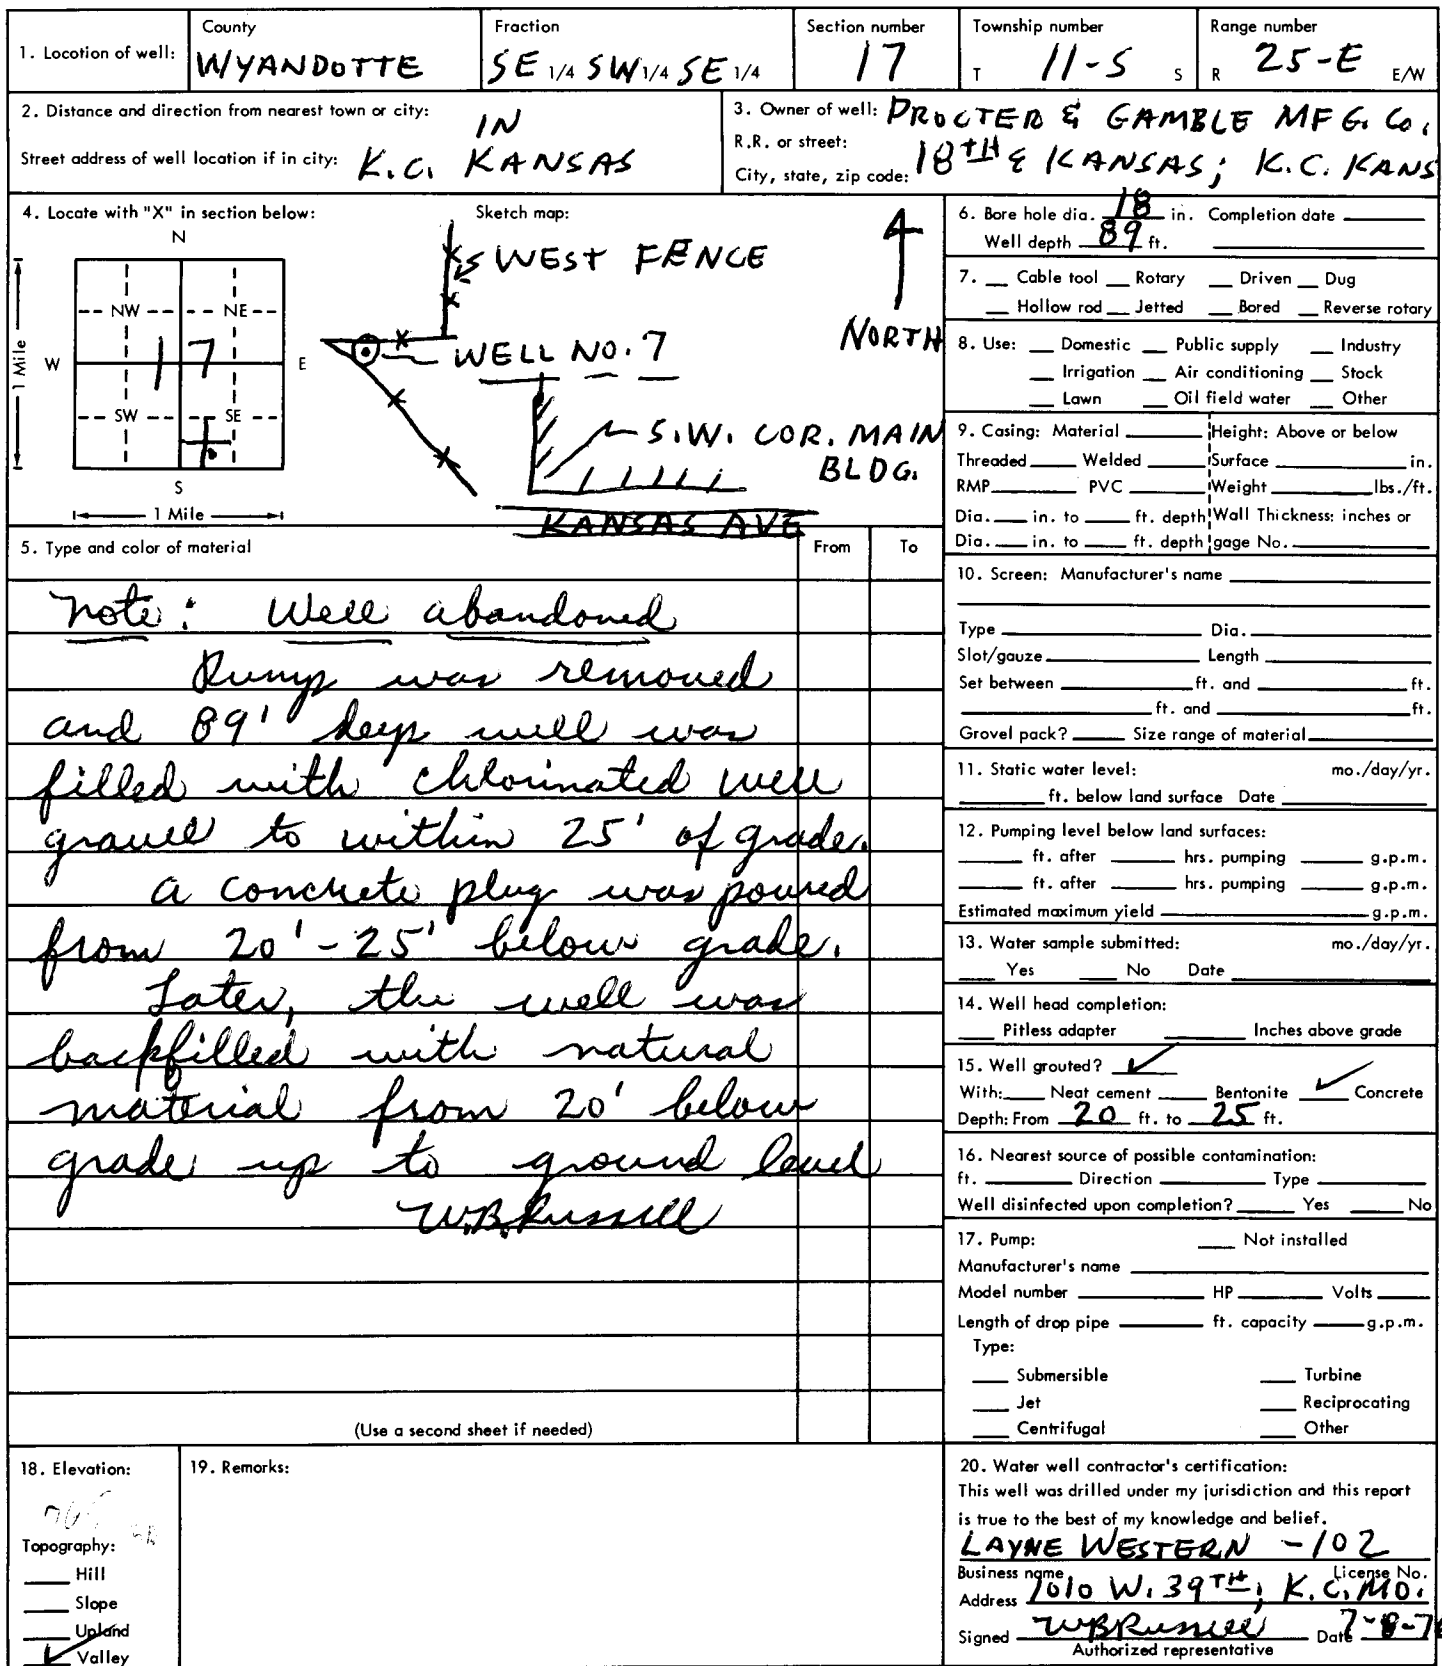 1. Location of well:
County
WYANDOTTE
Fraction
SE 1/4 SW 1/4 SE 1/4
Section number
17
Township number
T 11-S S
Range number
R 25-E E/W
2. Distance and direction from nearest town or city:
IN
Street address of well location if in city: K.C. KANSAS
3. Owner of well: PROCTER & GAMBLE MFG. Co.
R.R. or street:
City, state, zip code: 18TH & KANSAS; K.C. KANS
4. Locate with "X" in section below:
N
NW
NE
W
17
E
SW
SE
S
1 Mile
1 Mile
Sketch map:
WEST FENCE
NORTH
WELL NO. 7
S.W. COR. MAIN
BLDG.
KANSAS AVE
5. Type and color of material
From
To
Note: Well abandoned
Pump was removed
and 89' deep well was
filled with chlorinated well
gravel to within 25' of grade.
A concrete plug was poured
from 20'-25' below grade.
Later, the well was
backfilled with natural
material from 20' below
grade up to ground level
W.B. Russell
(Use a second sheet if needed)
6. Bore hole dia. 18 in. Completion date
Well depth 89 ft.
7. Cable tool Rotary Driven Dug
Hollow rod Jetted Bored Reverse rotary
8. Use: Domestic Public supply Industry
Irrigation Air conditioning Stock
Lawn Oil field water Other
9. Casing: Material Height: Above or below
Threaded Welded Surface in.
RMP PVC Weight lbs./ft.
Dia. in. to ft. depth Wall Thickness: inches or
Dia. in. to ft. depth gage No.
10. Screen: Manufacturer's name
Type Dia.
Slot/gauze Length
Set between ft. and ft.
ft. and ft.
Gravel pack? Size range of material
11. Static water level: mo./day/yr.
ft. below land surface Date
12. Pumping level below land surfaces:
ft. after hrs. pumping g.p.m.
ft. after hrs. pumping g.p.m.
Estimated maximum yield g.p.m.
13. Water sample submitted: mo./day/yr.
Yes No Date
14. Well head completion:
Pitless adapter Inches above grade
15. Well grouted? ✓
With: Neat cement Bentonite ✓ Concrete
Depth: From 20 ft. to 25 ft.
16. Nearest source of possible contamination:
ft. Direction Type
Well disinfected upon completion? Yes No
17. Pump: Not installed
Manufacturer's name
Model number HP Volts
Length of drop pipe ft. capacity g.p.m.
Type:
Submersible Turbine
Jet Reciprocating
Centrifugal Other
18. Elevation:
Topography:
Hill
Slope
Upland
✓ Valley
19. Remarks:
20. Water well contractor's certification:
This well was drilled under my jurisdiction and this report
is true to the best of my knowledge and belief.
LAYNE WESTERN -102
Business name License No.
Address 1010 W. 39TH; K.C. MO.
Signed WB Russell Date 7-8-7
Authorized representative